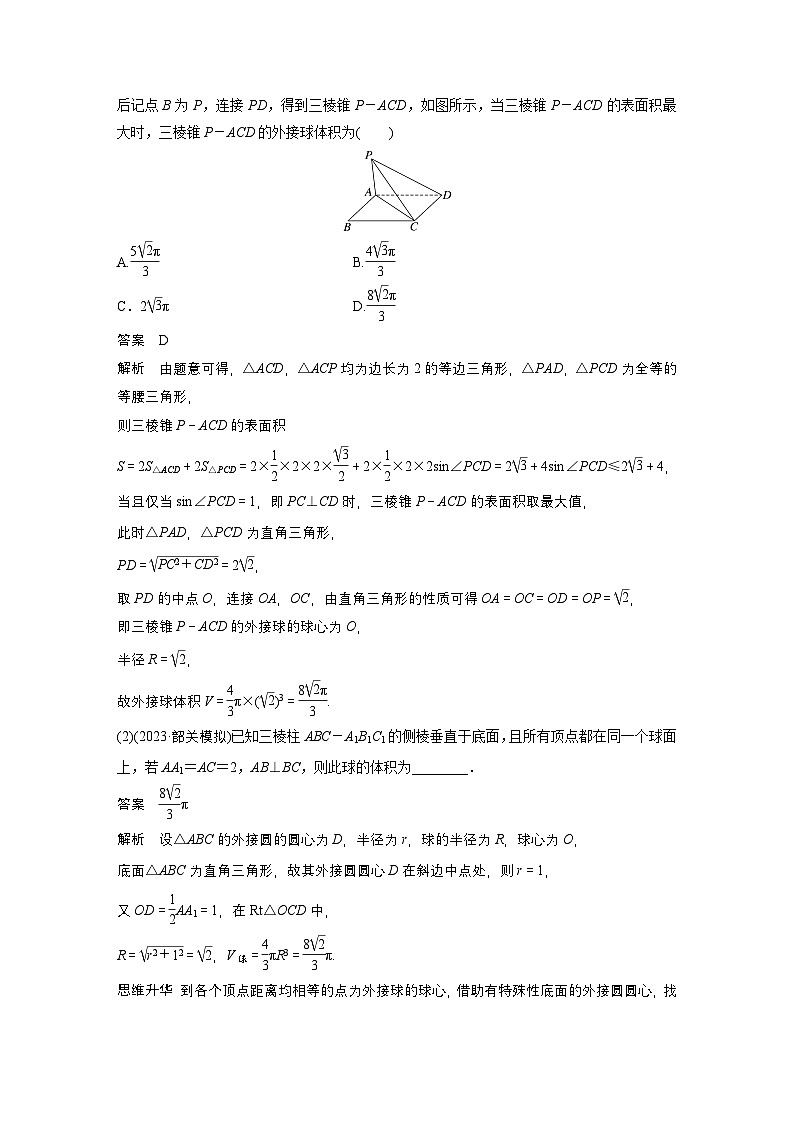 后记点 B 为 P，连接 PD，得到三棱锥 P－ACD，如图所示，当三棱锥 P－ACD 的表面积最
大时，三棱锥 P－ACD 的外接球体积为(　　)
P
A
D
B
C
A.5√2π/3　B.4√3π/3
C．2√3π　D.8√2π/3
答案　D
解析　由题意可得，△ACD，△ACP 均为边长为 2 的等边三角形，△PAD，△PCD 为全等的
等腰三角形，
则三棱锥 P－ACD 的表面积
S＝2S△ACD＋2S△PCD＝2×1/2×2×2×√3/2＋2×1/2×2×2sin∠PCD＝2√3＋4sin∠PCD≤2√3＋4，
当且仅当 sin∠PCD＝1，即 PC⊥CD 时，三棱锥 P－ACD 的表面积取最大值，
此时△PAD，△PCD 为直角三角形，
PD＝√(PC²＋CD²)＝2√2，
取 PD 的中点 O，连接 OA，OC，由直角三角形的性质可得 OA＝OC＝OD＝OP＝√2，
即三棱锥 P－ACD 的外接球的球心为 O，
半径 R＝√2，
故外接球体积 V＝4/3π×(√2)³＝8√2π/3.
(2)(2023·韶关模拟)已知三棱柱 ABC－A₁B₁C₁ 的侧棱垂直于底面，且所有顶点都在同一个球面
上，若 AA₁＝AC＝2，AB⊥BC，则此球的体积为________．
答案　8√2/3π
解析　设△ABC 的外接圆的圆心为 D，半径为 r，球的半径为 R，球心为 O，
底面△ABC 为直角三角形，故其外接圆圆心 D 在斜边中点处，则 r＝1，
又 OD＝1/2AA₁＝1，在 Rt△OCD 中，
R＝√(r²＋1²)＝√2，V球＝4/3πR³＝8√2/3π.
思维升华　到各个顶点距离均相等的点为外接球的球心，借助有特殊性底面的外接圆圆心，找